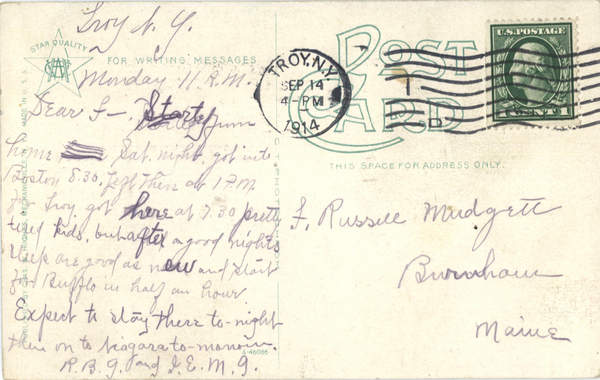 Troy N. Y.
STAR QUALITY
FOR WRITING MESSAGES
Monday 11 A.M.
Dear F— Started from
home Sat. night, got into
Boston 8.30, left there at 1 P.M.
for Troy, got here at 7.30 pretty
tired kids, but after a good nights
sleep are good as new and start
for Buffalo in half an hour.
Expect to stay there to-night
then on to Niagara to-morrow.
R.B.G. and I.E.M.G.
A-46086
POST
CARD
THIS SPACE FOR ADDRESS ONLY.
TROY, N.Y.
SEP 14
4-PM
1914
U.S. POSTAGE
F. Russell Mudgett
Burnham
Maine